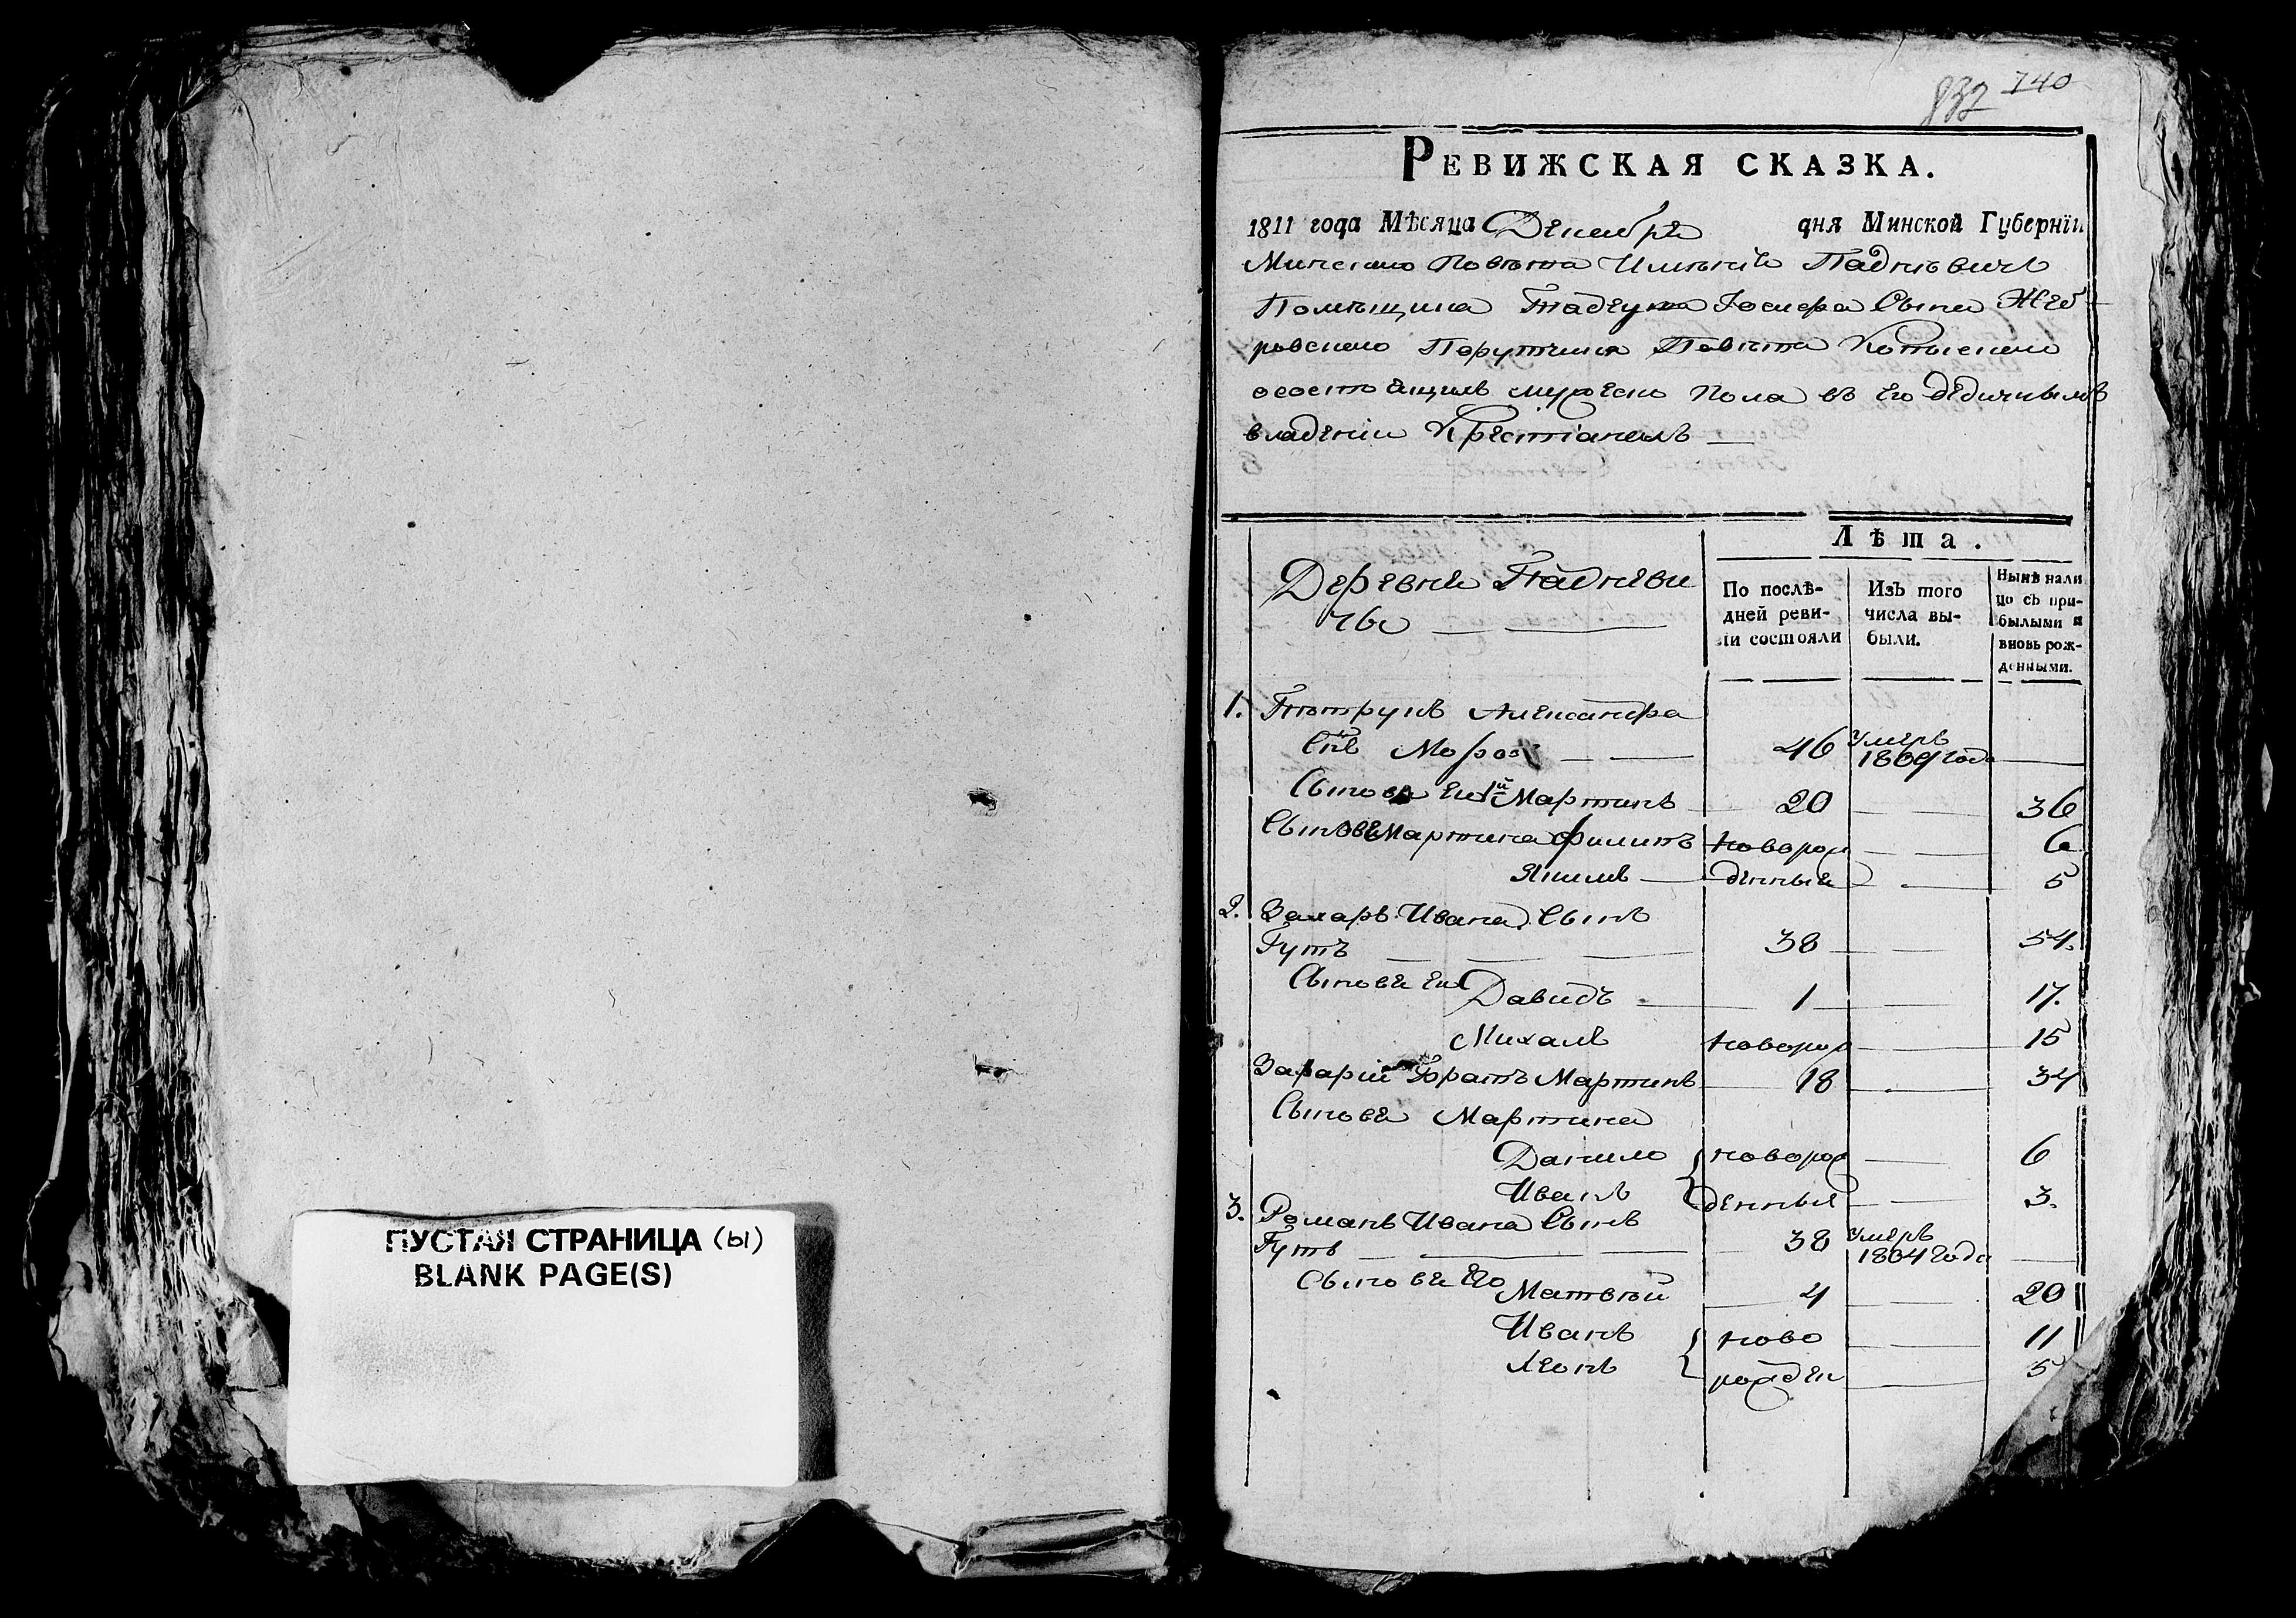 ПУСТАЯ СТРАНИЦА (ы)
BLANK PAGE(S)
832 740
РЕВИЖСКАЯ СКАЗКА.
1811 года Мѣсяца Декабря дня Минской Губернїи
Минскаго Повѣта Имѣнїя
Помѣщика Іосифа Сына Жеб-
ровскаго Порутчика Повѣта
состоящимъ мужеска пола въ его дѣдичнымъ
владѣніи Крестіанехъ —
Лѣта.
Деревня Падневи
чы
По послѣ-
дней реви-
зіи состояли
Изъ того
числа вы-
были.
Нынѣ нали
цо съ при-
былыми и
вновь рож-
денными.
1. Александра
Снъ Мороз 46 Умеръ 1809 года
Сынове его 1й Мартинъ 20 36
Сынове Мартина Филипъ новорож 6
Якимъ денныи 5
2. Захаръ Ивана Сынъ
Гутъ 38 54.
Сынове его Давидъ 1 17.
Михалъ новорож 15
Захарій братъ Мартинъ 18 34
Сынове Мартина
Данило новорож 6
Иванъ денныя 3.
3. Романъ Ивана Сынъ
Гутъ 38 Умеръ 1804 года
Сынове Его Матвѣй 4 20
Иванъ ново 11
Леонъ рожден 5